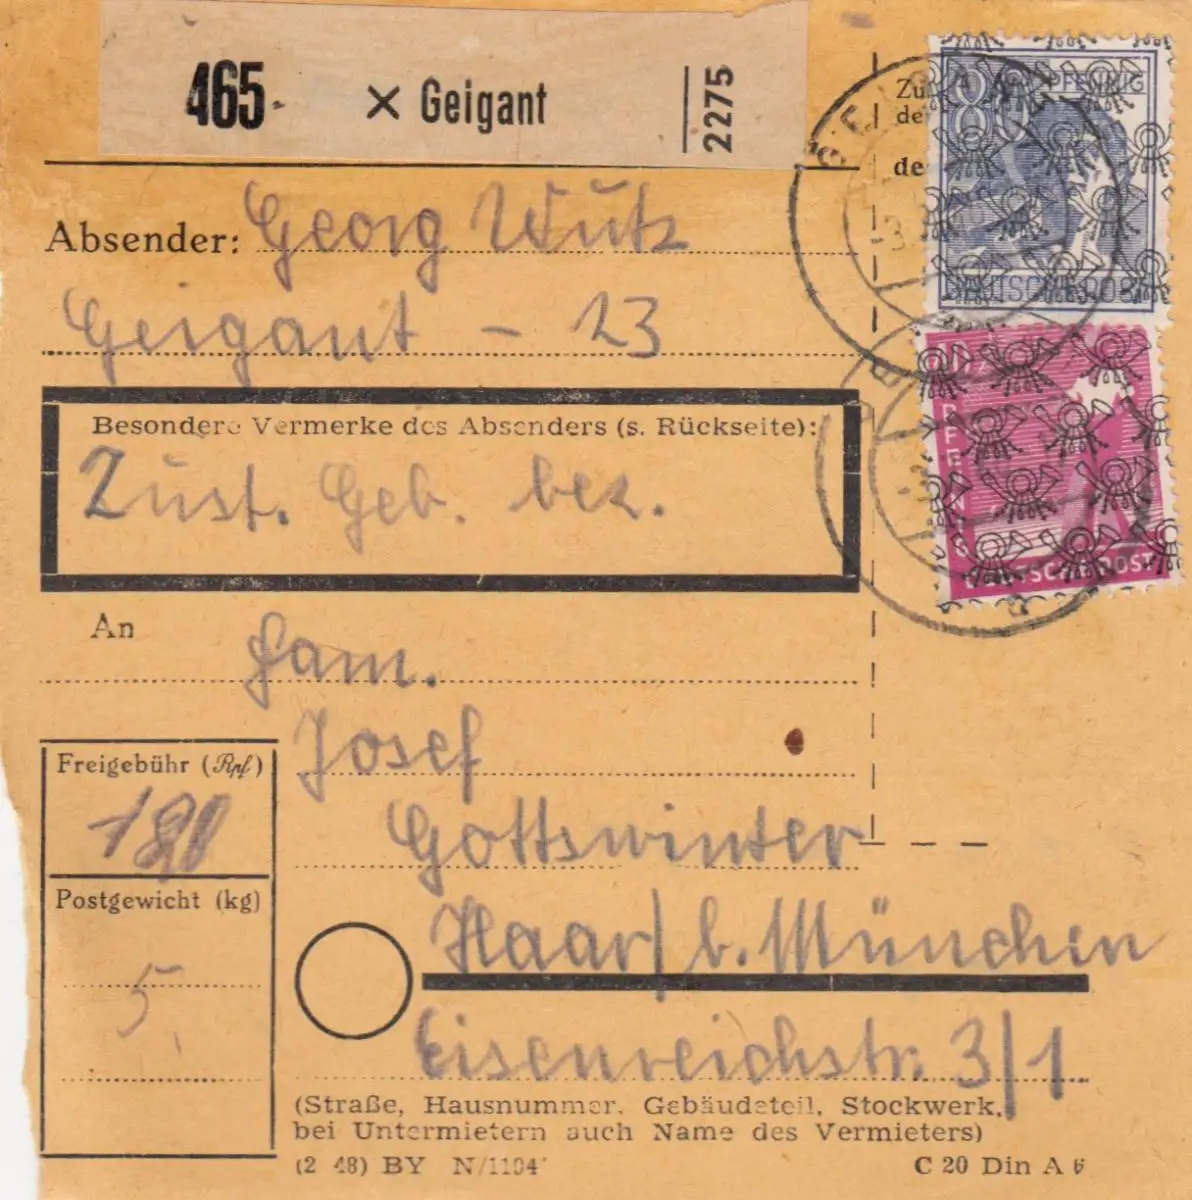 465 × Geigant 2275
Zu
de
de
80 PFENNIG
DEUTSCHE POST
Absender: Georg Wutz
Geigant - 23
Besondere Vermerke des Absenders (s. Rückseite):
Zust. Geb. bez.
PFENNIG
DEUTSCHE POST
An Fam.
Josef
Gottswinter
Haar/b. München
Eisenreichstr. 3/1
Freigebühr (Rpf)
180
Postgewicht (kg)
5,
(Straße, Hausnummer, Gebäudeteil, Stockwerk,
bei Untermietern auch Name des Vermieters)
(2 48) BY N/1104 C 20 Din A 6